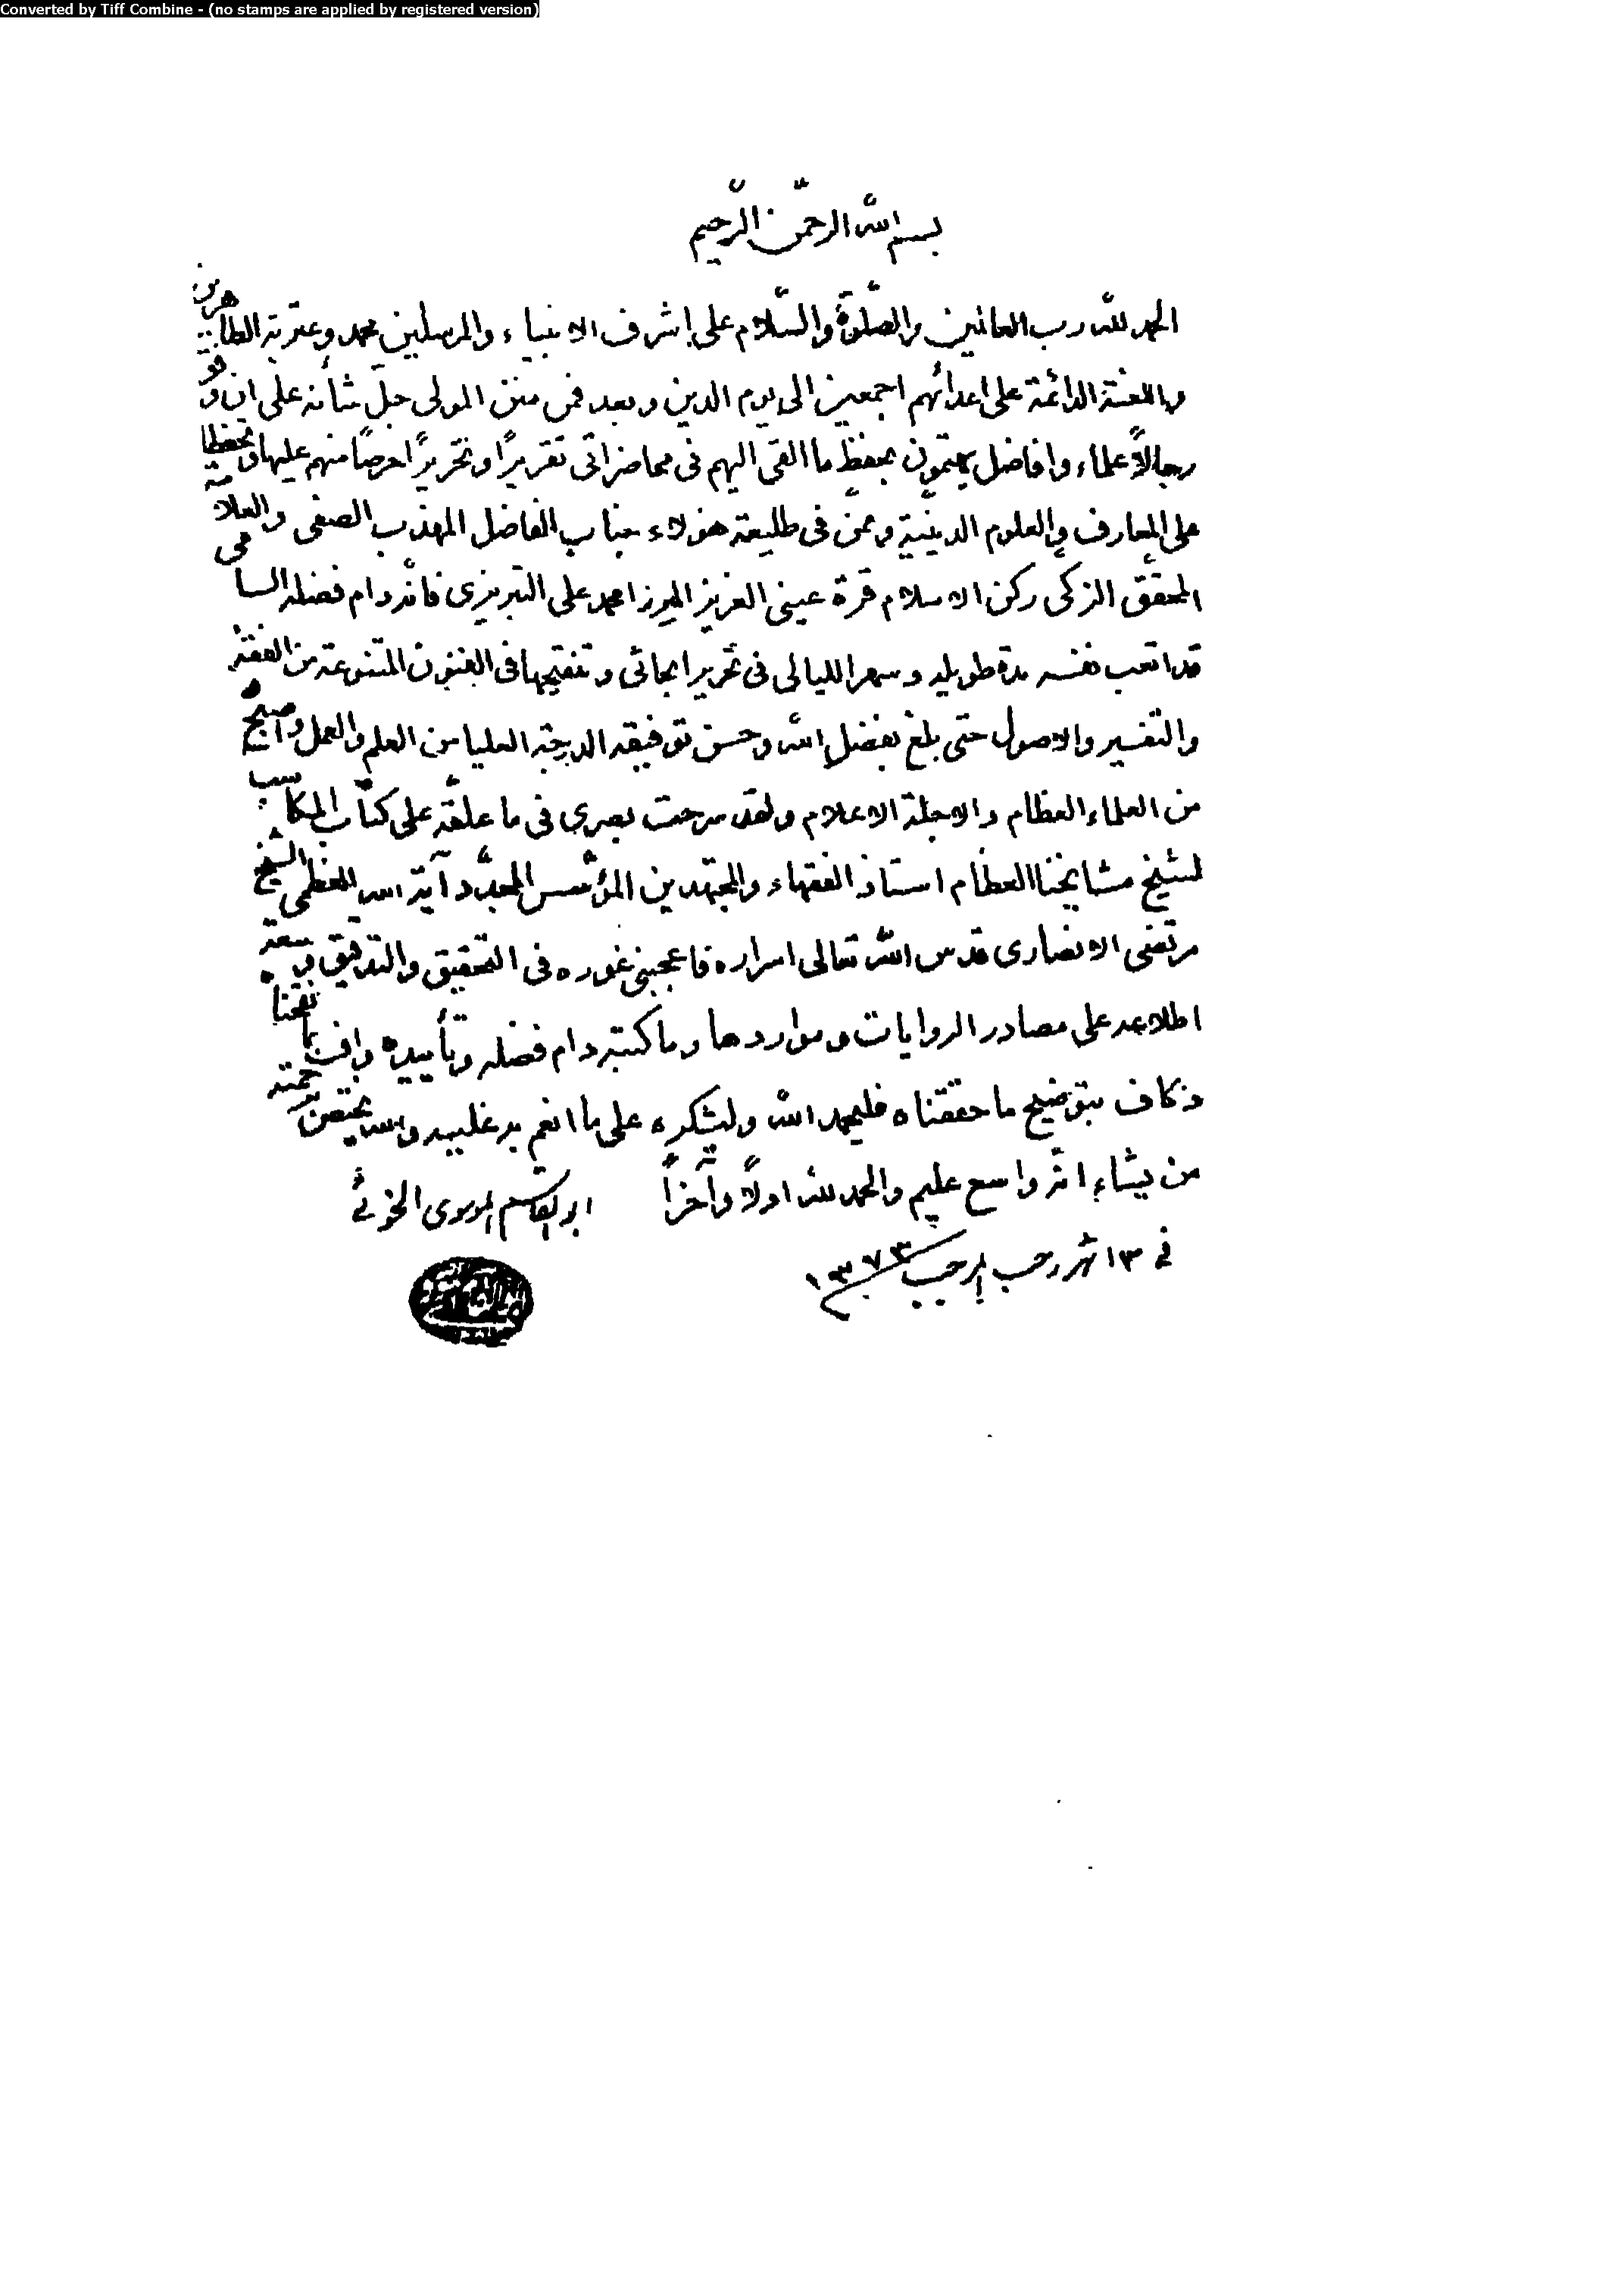 Converted by Tiff Combine - (no stamps are applied by registered version)
بسم الله الرحمن الرحيم
الحمد لله رب العالمين والصلوة والسلام على اشرف الانبياء والمرسلين محمد وعترته الطاهرين
واللعنة الدائمة على اعدائهم اجمعين الى يوم الدين وبعد فمن منن المولى جل شأنه على ان وفق
رجالاً علماء وافاضل يهتمون بحفظ ما القى اليهم في محاضراتي تقريراً وتحريراً حرصاً منهم عليها وتحفظا
على المعارف والعلوم الدينية وممن في طليعة هؤلاء جناب الفاضل المهذب الصفى والعلامة
المحقق الزكى ركن الاسلام قرة عيني العزيز الميرزا محمد على التبريزى فانه دام فضله السامى
قد اتعب نفسه مدة طويلة وسهر الليالى في تحرير ابحاثى وتنقيحها في الفنون المتنوعة من الفقه
والتفسير والاصول حتى بلغ بفضل الله وحسن توفيقه الدرجة العليا من العلم والعمل واصبح
من العلماء العظام والاجلة الاعلام ولقد سرحت بصرى في ما علقه على كتاب المكاسب
لشيخ مشايخنا العظام استاذ الفقهاء والمجتهدين المؤسس المجدد آية الله العظمى الشيخ
مرتضى الانصارى قدس الله تعالى اسراره فاعجبنى غوره في التحقيق والتدقيق وسعة
اطلاعه على مصادر الروايات ومواردها وما كتبه دام فضله وتأييده واف بما نقحناه
وكاف بتوضيح ما حققناه فليحمد الله وليشكره على ما انعم به عليه والله يختص برحمته
من يشاء انه واسع عليم والحمد لله اولاً وآخراً ابو القاسم الموسوى الخوئى
في ١٣ شهر رجب المرجب ١٣٧٣